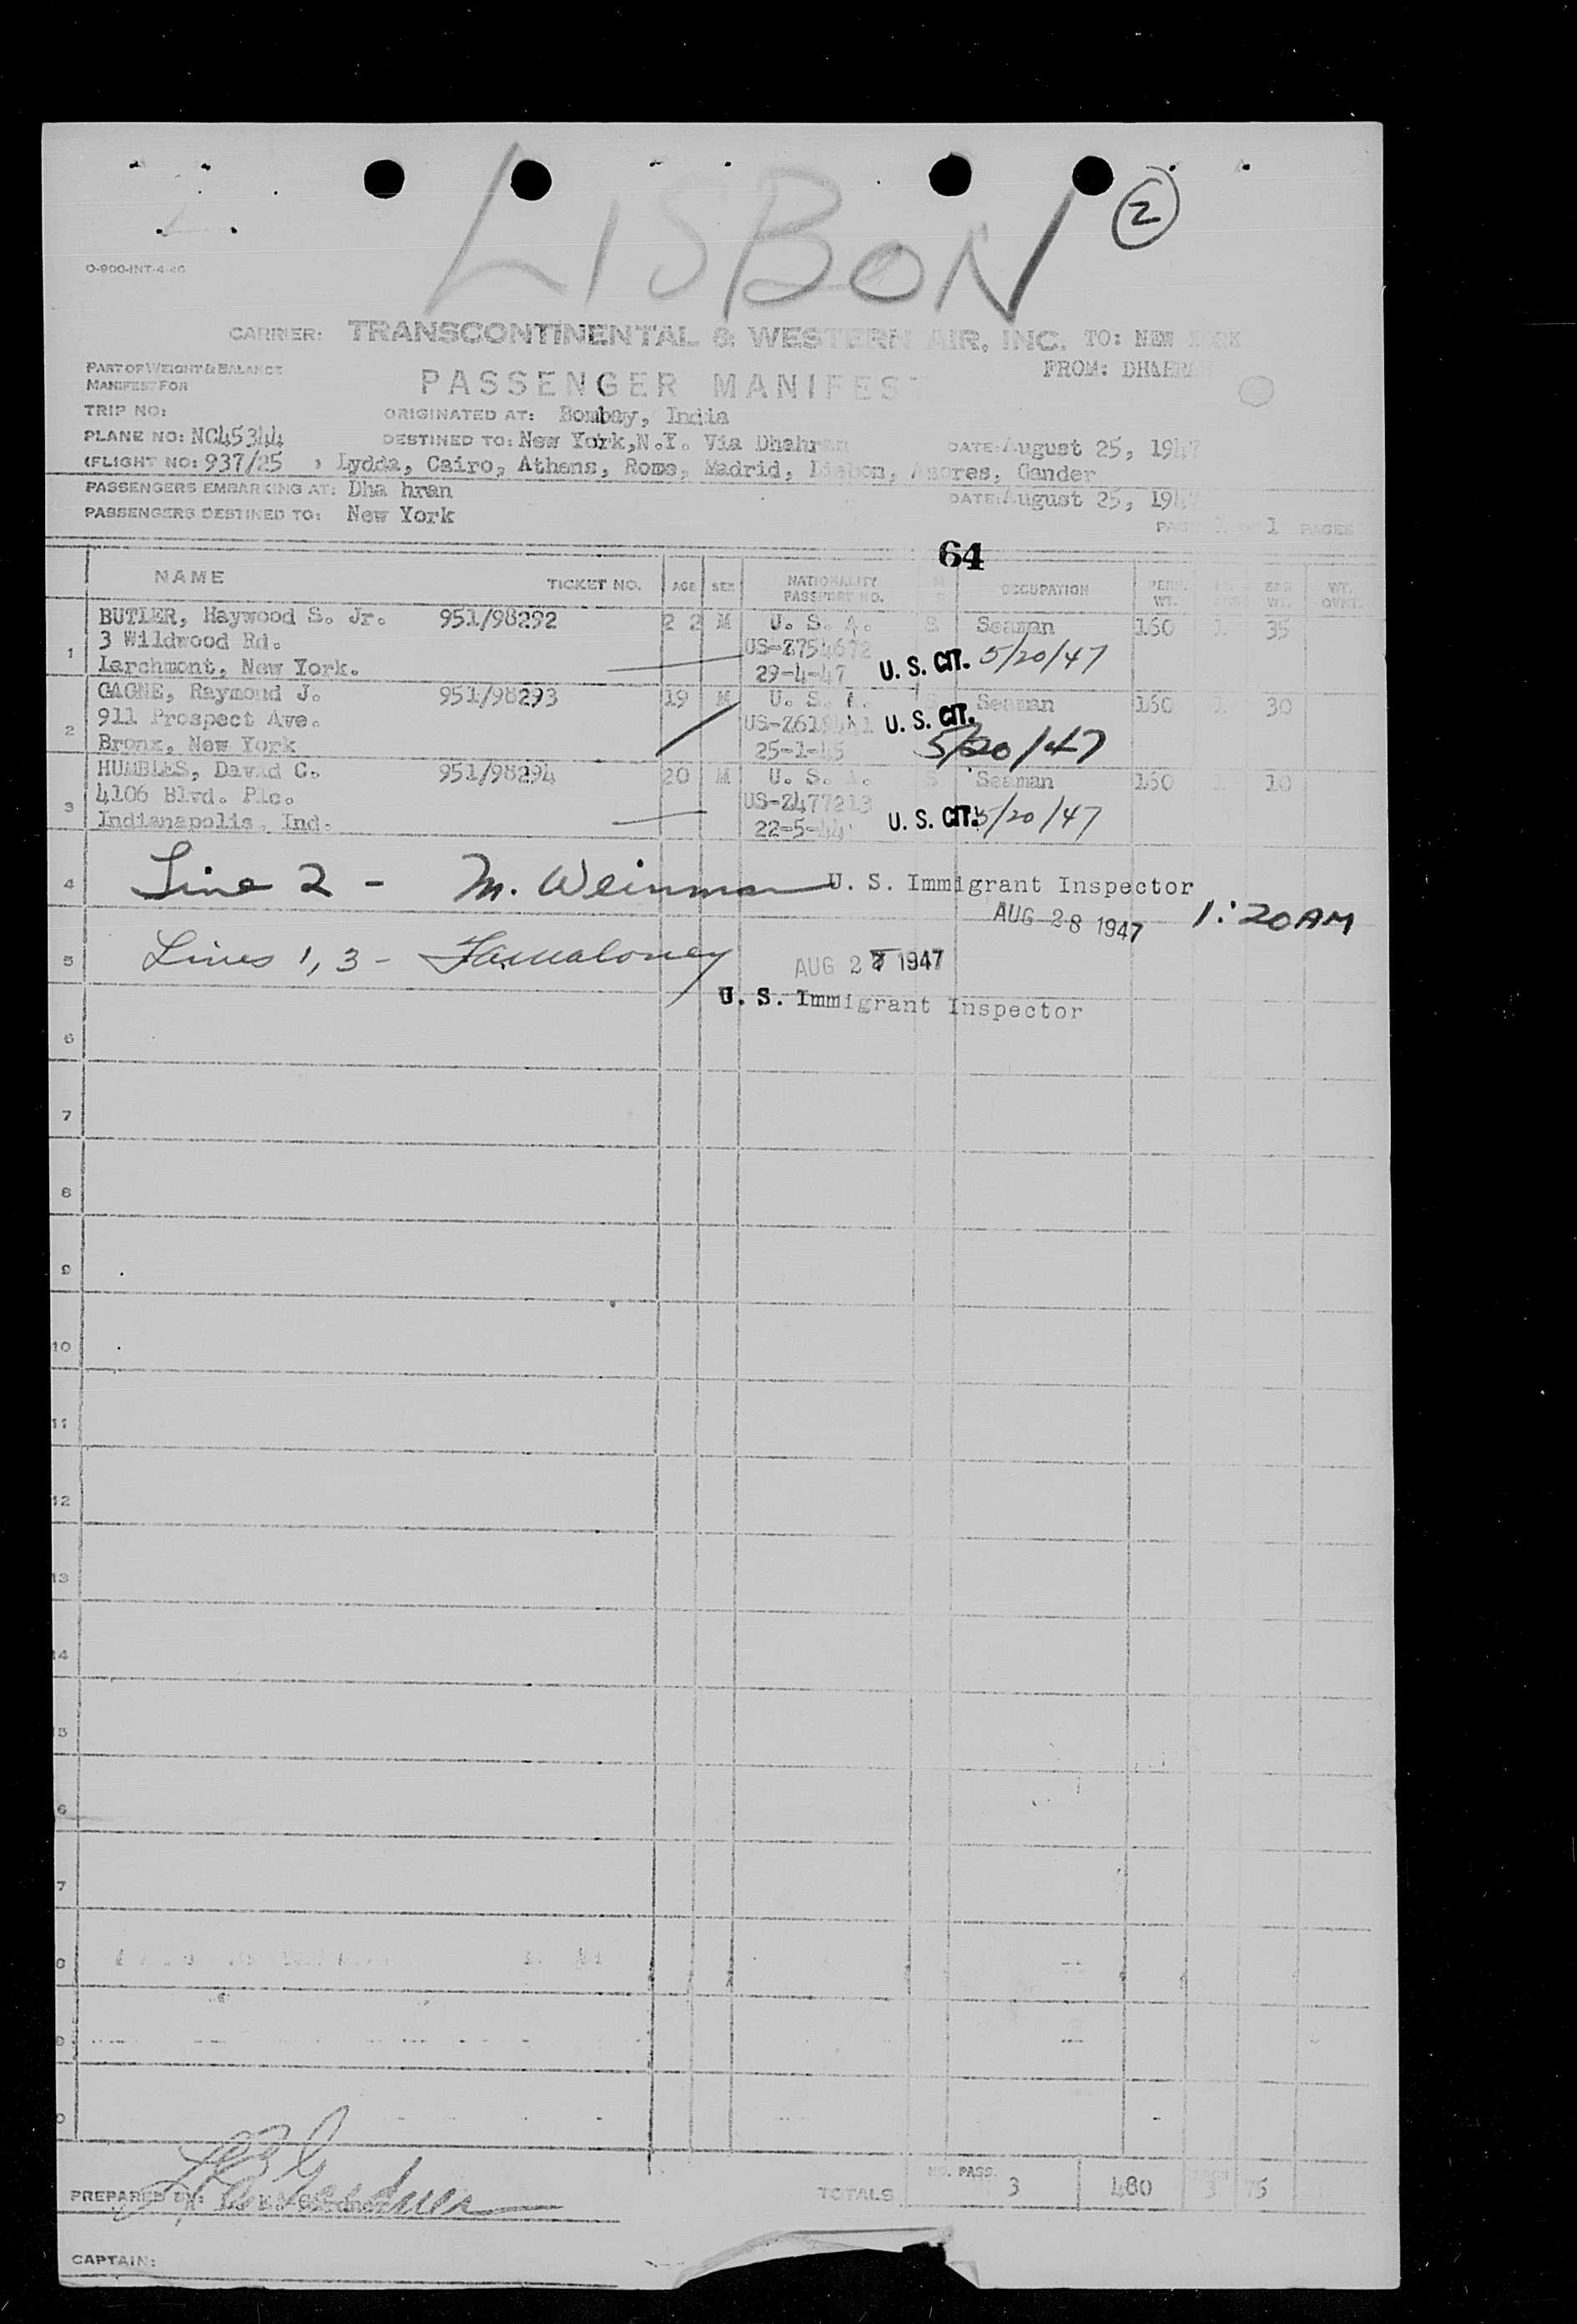 LISBON 2
O-900-INT-4-46
CARRIER: TRANSCONTINENTAL & WESTERN AIR, INC. TO: NEW YORK
PART OF WEIGHT & BALANCE
MANIFEST FOR
PASSENGER MANIFEST
FROM: DHAHRAN
TRIP NO:
ORIGINATED AT: Bombay, India
PLANE NO: NC45344
DESTINED TO: New York, N.Y. Via Dhahran
DATE: August 25, 1947
(FLIGHT NO: 937/25 , Lydda, Cairo, Athens, Rome, Madrid, Lisbon, Azores, Gander
PASSENGERS EMBARKING AT: Dha hran
DATE: August 25, 1947
PASSENGERS DESTINED TO: New York
PAGE 1 OF 1 PAGES
64
NAME TICKET NO. AGE SEX NATIONALITY PASSPORT NO. OCCUPATION PERS. WT. BAG WT. WT. OVWT.
1 BUTLER, Haywood S. Jr. 951/98292 2 2 M U. S. A. S Seaman 160 1 35
3 Wildwood Rd. US-Z754672
Larchmont, New York. 29-4-47 U. S. CIT. 5/20/47
2 GAGNE, Raymond J. 951/98293 19 M U. S. A. S Seaman 160 1 30
911 Prospect Ave. U. S. CIT.
Bronx, New York 25-1-45 5/20/47
3 HUMBLES, David C. 951/98294 20 M U. S. A. S Seaman 160 1 10
4106 Blvd. Plc. US-Z477213
Indianapolis, Ind. 22-5-44 U. S. CIT. 5/20/47
4 Line 2 - M. Weinman U. S. Immigrant Inspector
AUG 28 1947 1:20 AM
5 Lines 1, 3 - AUG 27 1947
U. S. Immigrant Inspector
6
7
8
9
10
11
12
13
14
15
6
7
8
9
0
PREPARED BY:
TOTALS NO. PASS. 3 480 3 75
CAPTAIN: